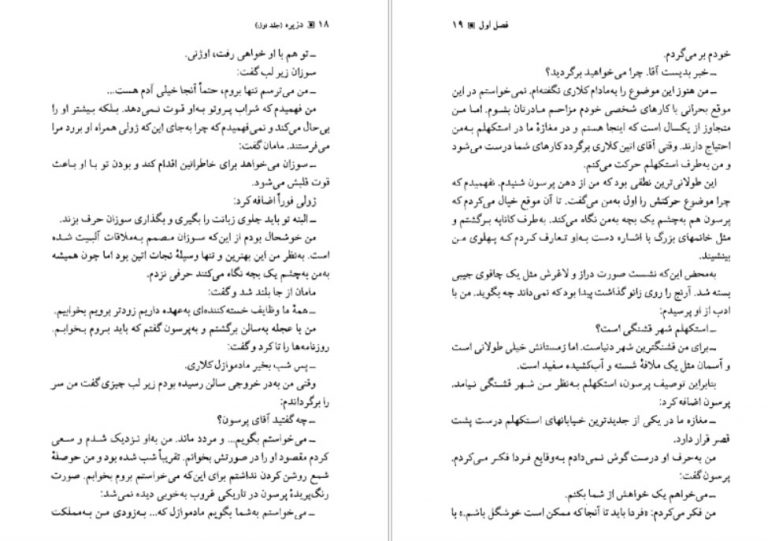 ۱۸ دزیره (جلد اول)
ــ تو هم با او خواهی رفت، اوژنی.
سوزان زیر لب گفت:
ــ من می‌ترسم تنها بروم، حتماً آنجا خیلی آدم هست...
من فهمیدم که شراب پروتو به‌او قوت نمی‌دهد. بلکه بیشتر او را
بی‌حال می‌کند و نمی‌فهمیدم که چرا به‌جای این‌که ژولی همراه او برود مرا
می‌فرستند. مامان گفت:
ــ سوزان می‌خواهد برای خاطر‌اتین اقدام کند و بودن تو با او باعث
قوت قلبش می‌شود.
ژولی فوراً اضافه کرد:
ــ البته تو باید جلوی زبانت را بگیری و بگذاری سوزان حرف بزند.
من خوشحال بودم از این‌که سوزان مصمم به‌ملاقات آلبیت شده
است. به‌نظر من این بهترین و تنها وسیلهٔ نجات اتین بود اما چون همیشه
به‌من به‌چشم یک بچه نگاه می‌کنند حرفی نزدم.
مامان از جا بلند شد و گفت:
ــ همهٔ ما وظایف خسته‌کننده‌ای به‌عهده داریم زودتر برویم بخوابیم.
من با عجله به‌سالن برگشتم و به‌پرسون گفتم که باید بروم بخوابم.
روزنامه‌ها را تا کرد و گفت:
ــ پس شب بخیر مادموازل کلاری.
وقتی من به‌در خروجی سالن رسیده بودم زیر لب چیزی گفت من سر
را برگرداندم:
ــ چه گفتید آقای پرسون؟
ــ می‌خواستم بگویم... و مردد ماند. من به‌او نزدیک شدم و سعی
کردم مقصود او را در صورتش بخوانم. تقریباً شب شده بود و من حوصلهٔ
شمع روشن کردن نداشتم برای این‌که می‌خواستم بروم بخوابم. صورت
رنگ‌پریدهٔ پرسون در تاریکی غروب به‌خوبی دیده نمی‌شد:
ــ می‌خواستم به‌شما بگویم مادموازل که... به‌زودی من به‌مملکت
فصل اول ۱۹
خودم بر می‌گردم.
ــ خبر بدیست آقا. چرا می‌خواهید برگردید؟
ــ من هنوز این موضوع را به‌مادام کلاری نگفته‌ام. نمی‌خواستم در این
موقع بحرانی با کارهای شخصی خودم مزاحم مادرتان بشوم. اما من
متجاوز از یکسال است که اینجا هستم و در مغازهٔ ما در استکهلم به‌من
احتیاج دارند. وقتی آقای اتین کلاری برگردد کارهای شما درست می‌شود
و من به‌طرف استکهلم حرکت می‌کنم.
این طولانی‌ترین نطقی بود که من از دهن پرسون شنیدم. نفهمیدم که
چرا موضوع حرکتش را اول به‌من می‌گفت. تا آن موقع خیال می‌کردم که
پرسون هم به‌چشم یک بچه به‌من نگاه می‌کند. به‌طرف کاناپه برگشتم و
مثل خانمهای بزرگ با اشاره دست به‌او تعارف کردم که پهلوی من
بنشیند.
به‌محض این‌که نشست صورت دراز و لاغرش مثل یک چاقوی جیبی
بسته شد. آرنج را روی زانو گذاشت پیدا بود که نمی‌داند چه بگوید. من با
ادب از او پرسیدم:
ــ استکهلم شهر قشنگی است؟
ــ برای من قشنگترین شهر دنیاست. اما زمستانش خیلی طولانی است
و آسمان مثل یک ملافهٔ شسته و آب‌کشیده سفید است.
بنابراین توصیف پرسون، استکهلم به‌نظر من شهر قشنگی نیامد.
پرسون اضافه کرد:
ــ مغازه ما در یکی از جدیدترین خیابانهای استکهلم درست پشت
قصر قرار دارد.
من به‌حرف او درست گوش نمی‌دادم به‌وقایع فردا فکر می‌کردم.
پرسون گفت:
ــ می‌خواهم یک خواهش از شما بکنم.
من فکر می‌کردم: «فردا باید تا آنجا که ممکن است خوشگل باشم.» با